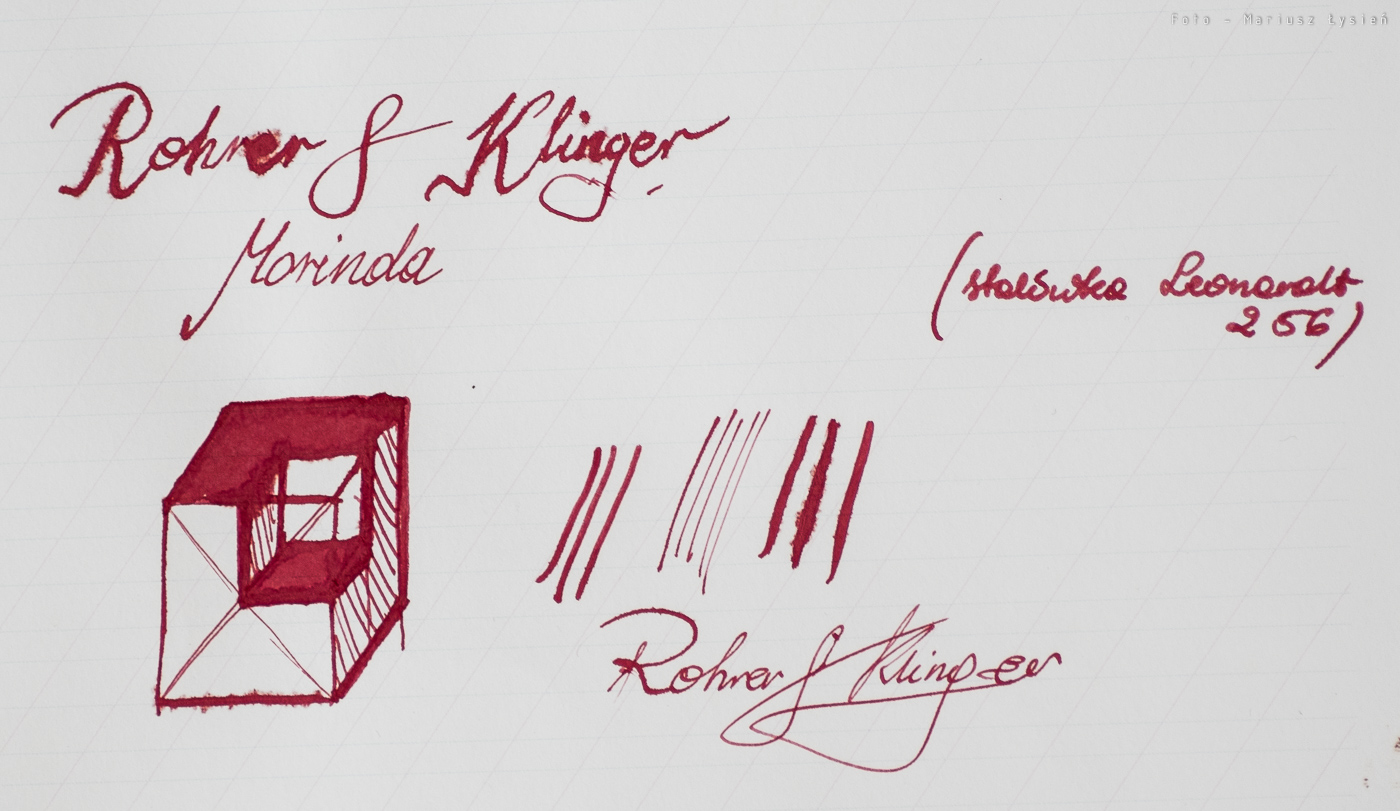 Foto - Mariusz Łysień
Rohrer & Klinger
Morinda
(stalówka Leonardt
256)
Rohrer & Klinger